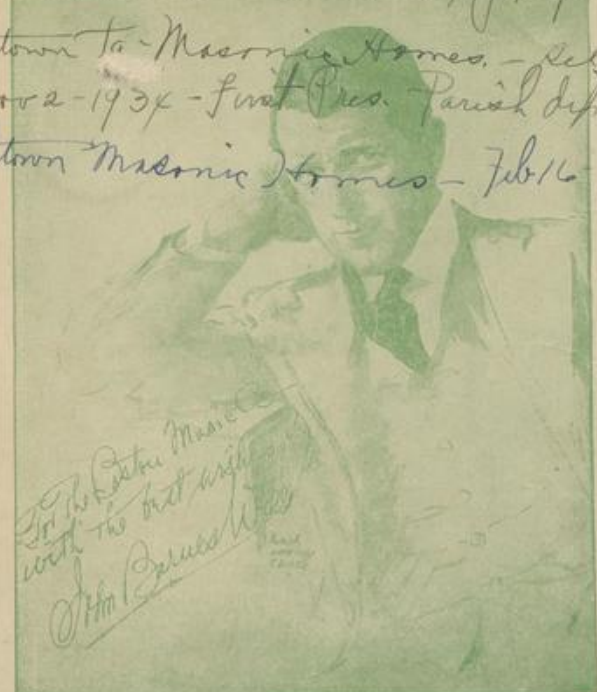 town to - Masonic Homes. -
ov 2 - 1934 - First Pres. Parish
town Masonic Homes - Feb 16
For The Boston Music Co
with the best wishes
John Barnes Wells